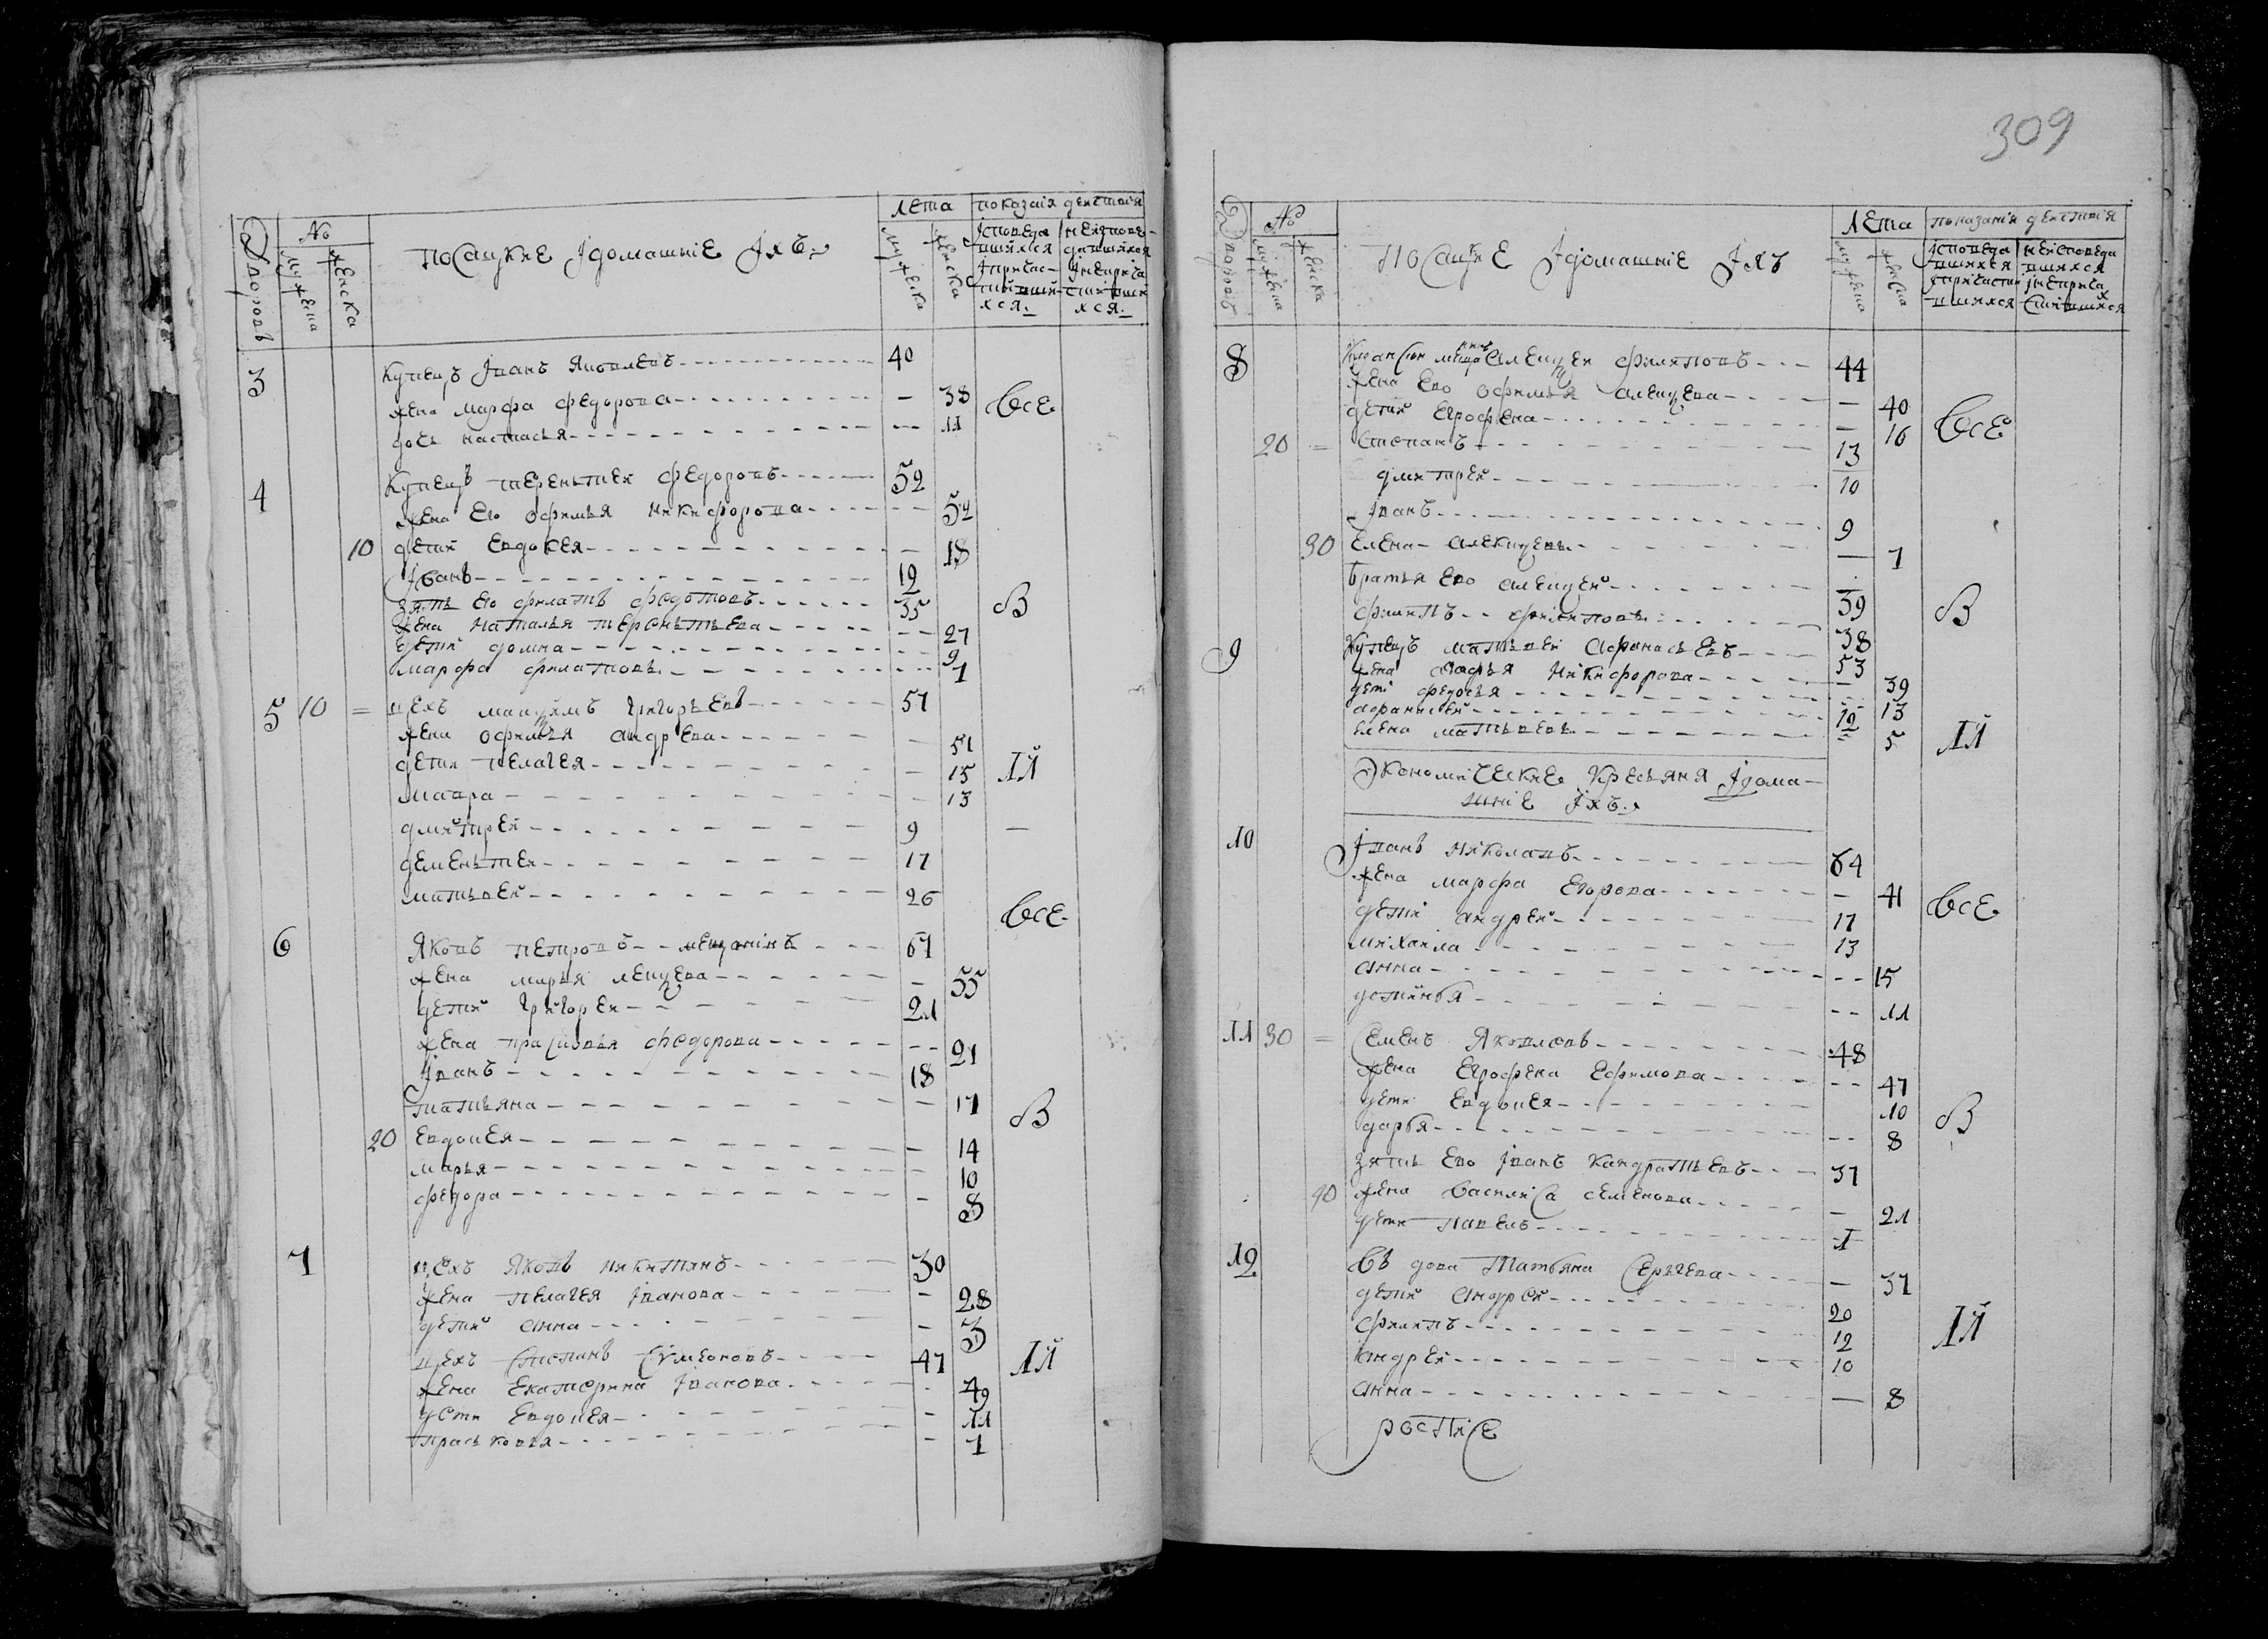 309
Дворовъ
№
мужеска
женска
посацкие Iдомашнiе Iхъ
лета
мужеска
женска
показанiя действiя
Iсповеда
вшихся
Iпричас-
тивши
хся
неисповѣ-
давшихся
Iнеприча
стивши
хся
3 купецъ Iванъ Яковлевъ 40
жена марфа федорова 38
дочь настасья 11
все
4 купецъ терентьей федоровъ 52
жена Его офимья никифорова 52
10 дети Евдокея 18
Iванъ 19
зять Его филатъ федотовъ 35
жена наталья терентьева 27
дети домна 9
марфа филатова 7
в
5 10 цехъ максимъ григорьевъ 57
жена офимья андрева 51
дети пелагея 15
мавра 13
дмитрей 9
дементей 17
матвей 26
IЙ
6 Яковъ петровъ мещанинъ 67
все
жена марья
55
дети григорей 21
жена прасковья федорова 21
Iванъ 18
татьяна 17
20 Евдокея 14
марья 10
федора 8
в
7 цехъ Яковъ никитинъ 30
жена пелагея Iванова 28
дети анна 3
цехъ степанъ сумеоновъ 47
жена Екатерина Iванова 49
дети Евдокея 11
прасковья 7
IЙ
Дворовъ
№
мужеска
женска
посацкие Iдомашнiе Iхъ
лета
мужеска
женска
показанiя действiя
Iсповеда
вшихся
Iпричасти
вшихся
неисповеда
вшихся
Iнеприча
стившихся
8
Алексей филиповъ 44
жена Ево офимья алексева 40
дети Егрофена 16
20 степанъ 13
дмитрей 10
Iванъ 9
30 Елена алексева 7
братья Ево алексей 39
филипъ филиповы 38
все
в
9 купецъ матвей афанасьевъ 53
жена никифорова 39
дети федосья 13
афанасей 12
елена матвеевы 5
IЙ
Экономические кресьяня Iдома-
шнiе Iхъ
10 Iванъ николаевъ 64
жена марфа Егорова 41
дети андрей 17
михаила 13
анна 15
устинья 11
все
11 30 семенъ Яковлевъ 48
жена Егрофена Ефимова 47
дети Евдокея 10
дарья 8
зять Ево Iванъ кандратьевъ 37
40 жена василиса семенова 21
дети павелъ 1
в
12 въ дова татьяна сергеева 37
дети андрей 20
филипъ 12
андрей 10
анна 8
IЙ
росписе